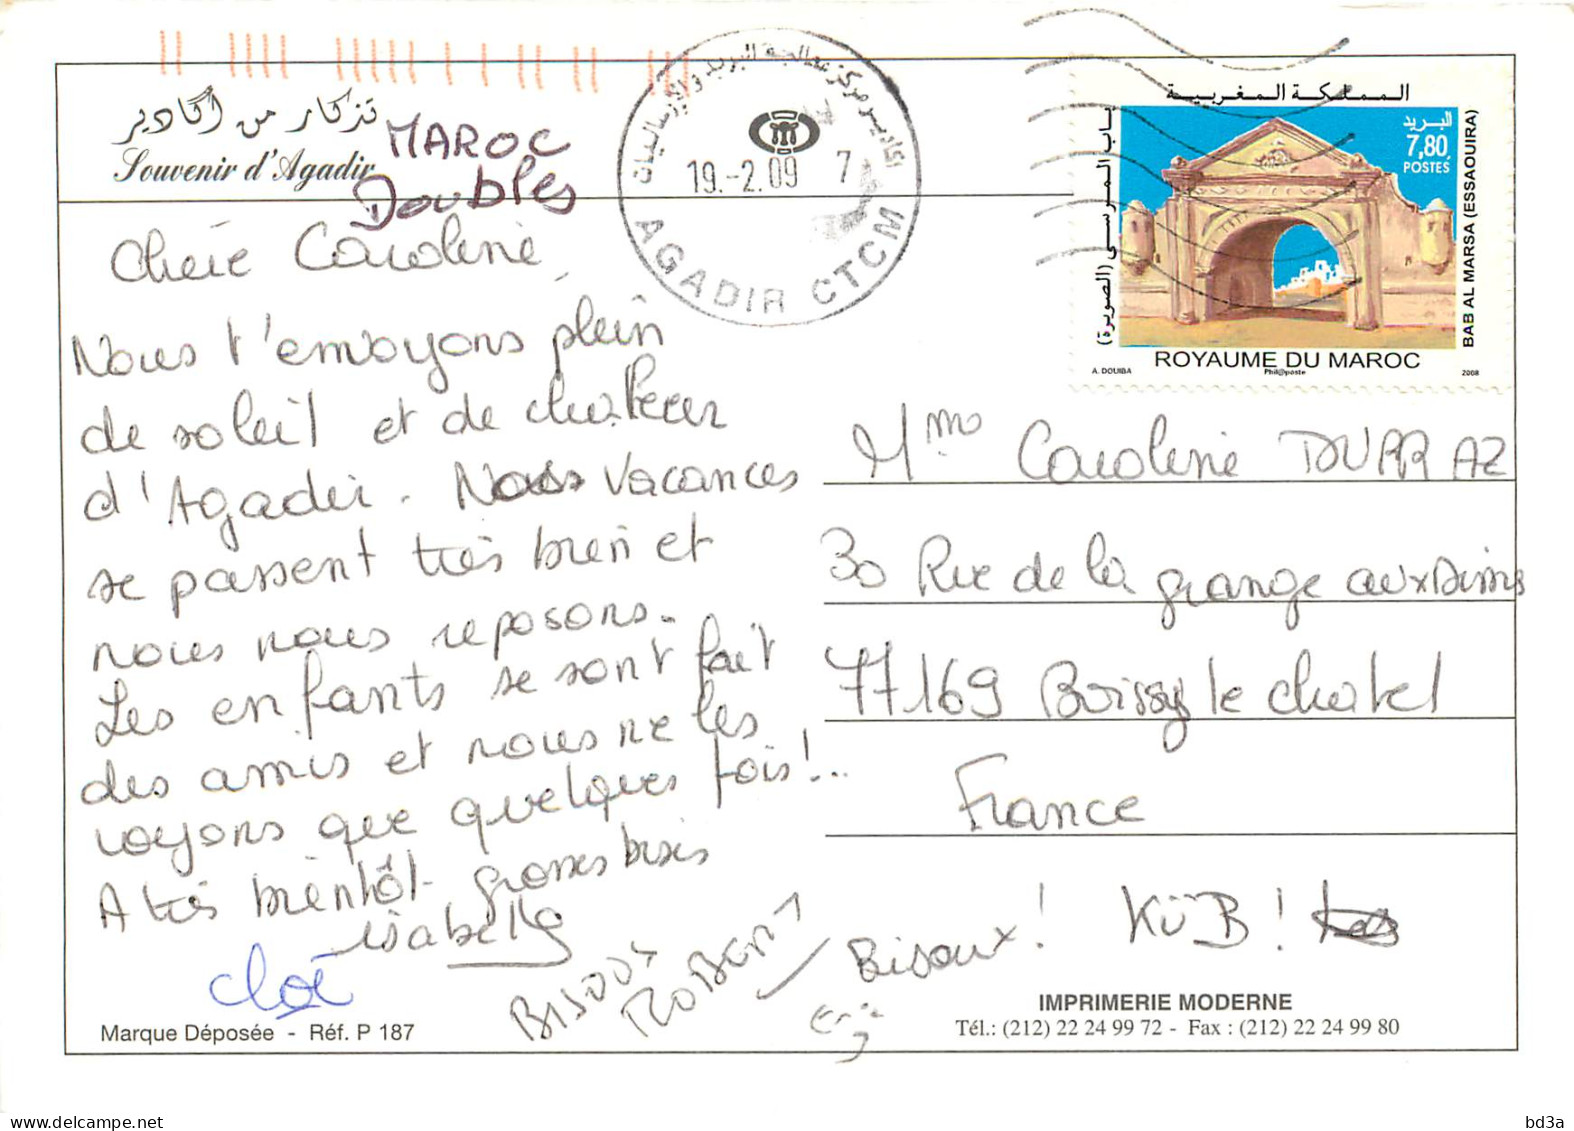 تذكار من أكادير
Souvenir d'Agadir
MAROC
Doubles
أكادير مركز معالجة البريد والإرساليات
19.-2.09 7
AGADIR CTCM
المملكة المغربية
البريد
7,80
POSTES
باب المرسى (الصويرة)
BAB AL MARSA (ESSAOUIRA)
ROYAUME DU MAROC
A. DOUIBA Phil@poste 2008
Chère Caroline,
Nous t'envoyons plein
de soleil et de chaleur
d'Agadir. Nos vacances
se passent très bien et
nous nous reposons.
Les enfants se sont fait
des amis et nous ne les
voyons que quelques fois!...
A très bientôt grosses bises
Isabelle
Chloé
Bisoux
Bisoux! KüB!
Mme Caroline DURRAZ
30 Rue de la grange aux Dimes
77169 Boissy le Chatel
France
Marque Déposée - Réf. P 187
IMPRIMERIE MODERNE
Tél.: (212) 22 24 99 72 - Fax : (212) 22 24 99 80
bd3a